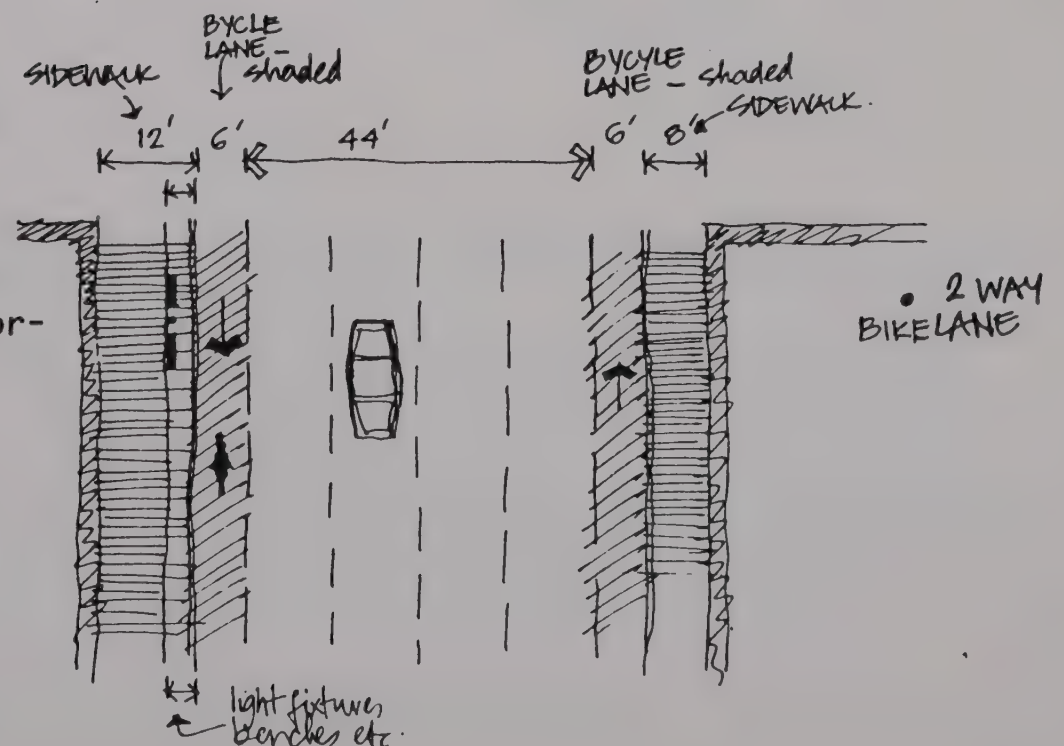 BYCLE
LANE -
shaded
SIDEWALK
BYCYLE
LANE - shaded
SIDEWALK.
12'
6'
44'
6'
8'
or-
• 2 WAY
BIKELANE
light fixtures
benches etc.